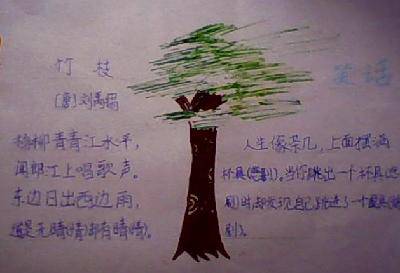 竹 枝
(唐)刘禹锡
杨柳青青江水平，
闻郎江上唱歌声。
东边日出西边雨，
道是无晴(情)却有晴(情)。
笑话
人生像茶几，上面摆满
杯具(悲剧)。当你跳出一个杯具(悲
剧)时,却发现自己跳进了一个餐具(惨
剧)。